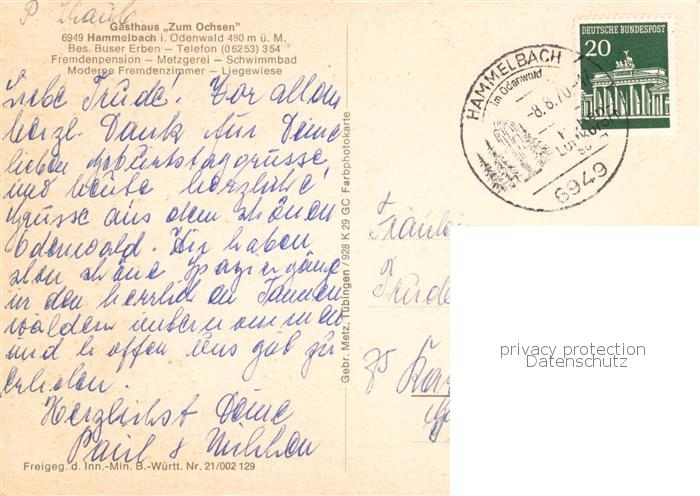 Gasthaus „Zum Ochsen"
6949 Hammelbach i. Odenwald 480 m ü. M.
Bes. Buser Erben – Telefon (06253) 354
Fremdenpension – Metzgerei – Schwimmbad
Moderne Fremdenzimmer – Liegewiese
Liebe Trude! Vor allem
herzl. Dank für Deine
lieben Geburtstagsgrüsse
und heute herzliche
Grüsse aus dem schönen
Odenwald. Wir haben
schon schöne Spaziergänge
in den herrlichen Tannen
wäldern unternommen
und hoffen uns gut zu
erholen.
Herzlichst Deine
Paul &
Freigeg. d. Inn.-Min. B.-Württ. Nr. 21/002 129
Gebr. Metz, Tübingen / 928 K 29 GC Farbphotokarte
DEUTSCHE BUNDESPOST
20
HAMMELBACH
im Odenwald
-8.8.70
Luftkurort
6949
Fräulein
Trude
privacy protection
Datenschutz